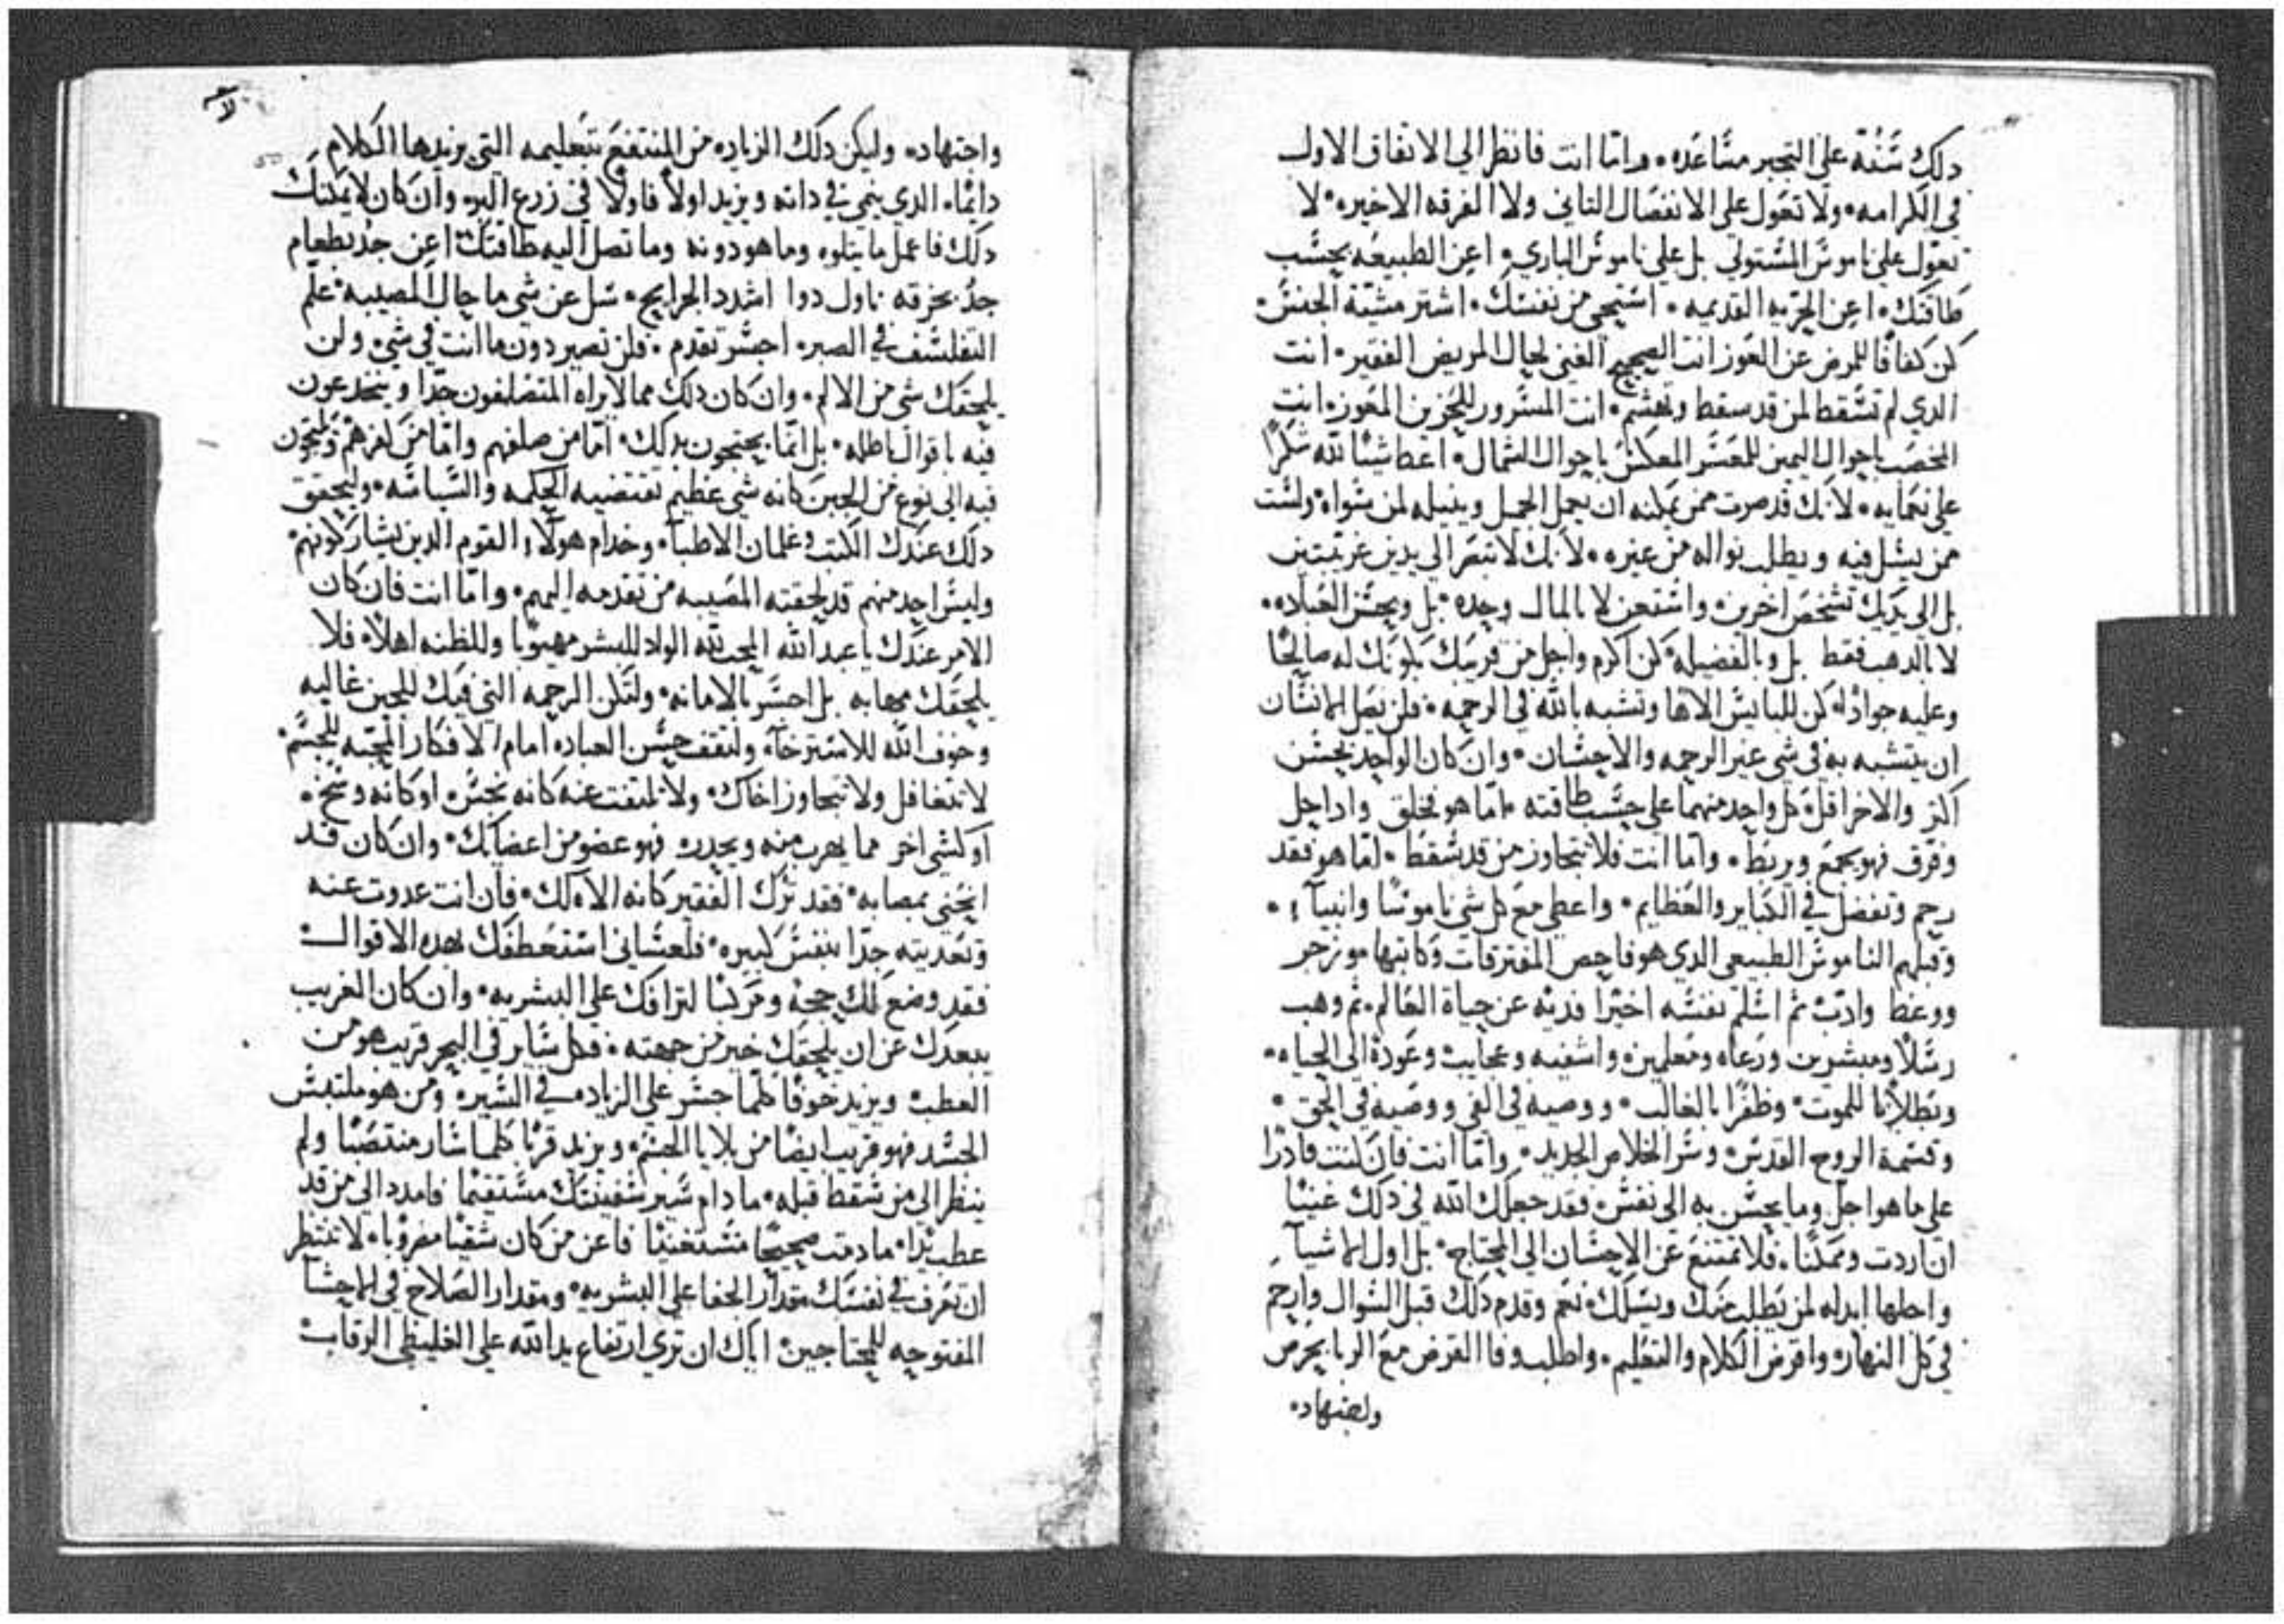 دلك سنة على التجبر مساعده. واما انت فانظر الي الاتفاق الاول
في الكرامه. ولا تعول على الانفصال التاني ولا الفرقه الاخيره. لا
تعول على ناموس المستولي بل على ناموس الباري. اعن الطبيعه بحسب
طاقتك. اعن الحريه القديمه. استحي من نفسك. استر مشبة الجنس.
كن كفافا للمرض عن العوز انت الصحيح الغني لحال المريض الفقير. انت
الدي لم تسقط لمن قد سقط وتهشم. انت المسرور للحزين المعوز. انت
المخصب باحوال اليمين للمعسر المعكس باحوال الشمال. اعط شيئا لله شكرا
على نعمايه. لانك قد صرت ممن يمكنه ان يعمل الجميل وينيله لمن سواه ولست
ممن يسل فيه ويطلب نواله من غيره. لانك لا تبصر الي يدين غريبتين
بل الى يديك تشخص اخرين. واستعن لا بالمال وحده. بل وبحسن العباده.
لا بالدهب فقط بل وبالفضيله. كن اكرم واجل من قريبك بكونك له صالحا
وعليه جوادا. كن للبايس الاها وتشبه بالله في الرحمه. فلن يصل الانسان
ان يتشبه به في شي غير الرحمه والاحسان. وان كان الواحد يحسن
اكتر والاخر اقل. كل واحد منهما على حسب طاقته. اما هو فخلق وادا حل
وفرق فهو يجمع ويربط. واما انت فلا تتجاوز من قد سقط. اما هو فقد
رحم وتفضل في الكباير والعظايم. واعطى مع كل شي ناموسا وانبيآء.
وقبلهم الناموس الطبيعي الدي هو فاحص المفترقات وكاتبها موزجر
ووعظ وادب ثم اسلم نفسه اخيرا فدية عن حياة العالم. ثم وهب
رسلا ومبشرين ورعاه ومعلمين واشفيه وعجايب وعودة الى الحياه.
وبطلانا للموت. وظفرا بالغالب. ووصيه في الفي ووصيه في الحق.
وقسمة الروح القدس. وسر الخلاص الجديد. واما انت فان كنت قادرا
على ما هو اجل وما يحسن به الى نفس. فقد جعلك الله في دلك غنيا
ان اردت وممكنا. فلا تمتنع عن الاحسان الي المحتاج. بل اول الاشيآ
واجلها ابدله لمن يطلب منك ويسلك. نعم وقدم دلك قبل السوال وارحم
في كل النهار. واقرض الكلام والتعليم. واطلب وفا القرض مع الربا بحرص
واجتهاد.
واجتهاد. وليكن دلك الزياده من المنتفع بتعليمه التي يزيدها الكلام
دايما. الدي ينمي في داته ويزيد اولا فاولا في زرع البر. وان كان لا يمكنك
دلك فاعمل ما يتلوه وما هو دونه وما تصل اليه طاقتك. اعن جد بطعام
جد بخرقه ناول دوا اشدد الجرايح. سل عن شي ما حال المصيبه. علم
التفلسف في الصبر. اجسر تقدم. فلن تصير دون ما انت في شي. ولن
يلحقك شي من الالم. وان كان دلك مما لا يراه المتصلفون جدا وينخدعون
فيه باقوال باطله. بل انما يحتجون بدلك. اما من صلفهم واما من كفرهم ويلتجون
فيه الى نوع من الجبن كانه شي عظيم تقتضيه الحكمه والسياسه. وليحقق
دلك عندك الكتب وغلمان الاطبآ. وخدام هولآء القوم الدين يشاركونهم.
وليس احد منهم قد لحقته المصيبه من تقدمه اليهم. واما انت فان كان
الامر عندك يا عبد الله المحب لله الواد للبشر مهيوبا وللظنه اهلا. فلا
يلحقك مهابه بل اجسر بالامانه. ولتكن الرحمه التي فيك للجبن غالبه
وخوف الله للاسترخآء. ولتقف حسن العباده امام الافكار المحبه للجسم.
لا تتغافل ولا تتجاوز اخاك. ولا تلتفت عنه كانه نجس. او كانه وسخ.
او كشي اخر مما يهرب منه ويحدر. فهو عضو من اعضايك. وان كان قد
انحنى بمصابه. فقد ترك الفقير كانه الاه لك. فان انت عدوت عنه
وتعديته جدا بنفس كبيره. فلعساني استعطفك بهده الاقوال
فقد وضع لك حجة ومركبا لترافك على البشريه. وان كان الغريب
يبعدك عن ان يلحقك خير من جهته. فكل ساير في البحر قريب هو من
العطب. ويزيد خوفا كلما جسر على الزياده في السير. ومن هو ملتبس
الجسد فهو قريب ايضا من بلايا الجسم. ويزيد قربا كلما سار منتصبا ولم
ينظر الي من سقط قبله. ما دام سير سفينتك مستقيما فامدد الي من قد
عطب يدا. ما دمت صحيحا مستغنيا فاعن من كان شقيا مضروبا. لا تنتظر
ان تعرف في نفسك مقدار الجفا على البشريه. ومقدار الصلاح في الاحشآ
المفتوحه للمحتاجين. اياك ان تري ارتفاع يد الله على الغليظي الرقاب